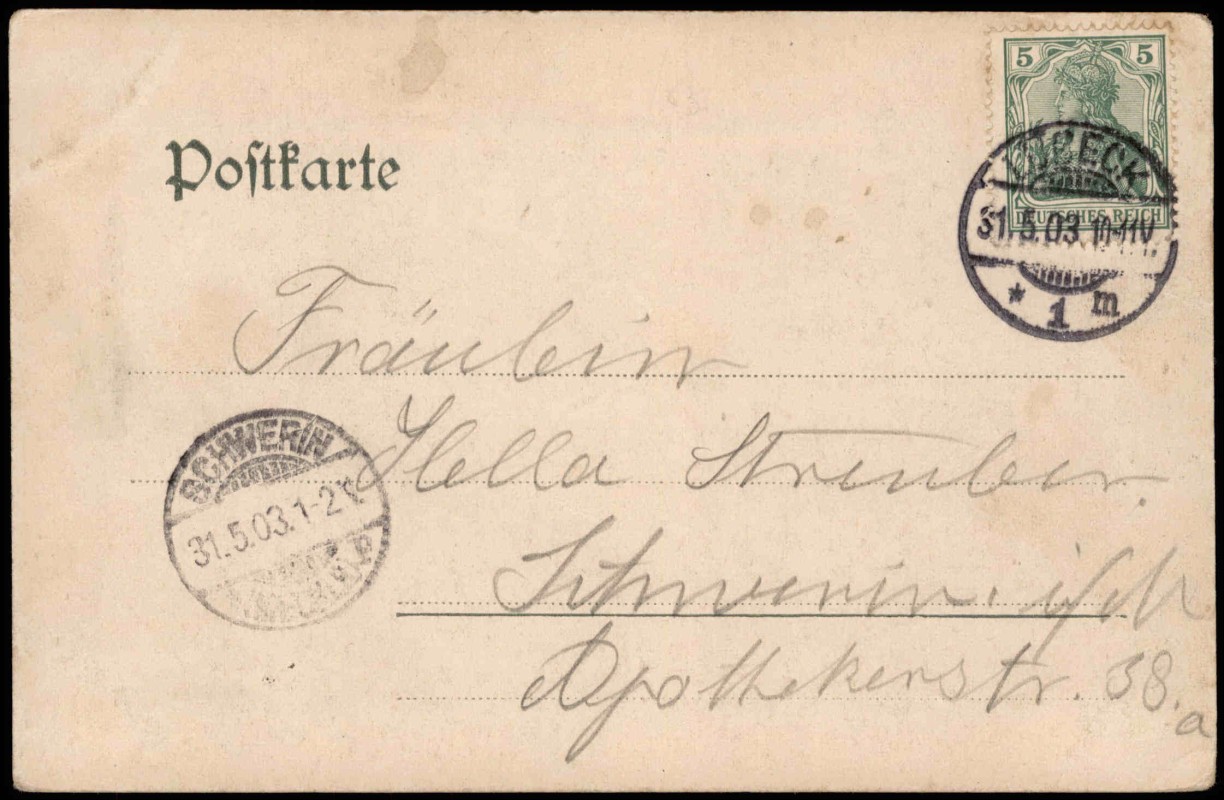 5 5
DEUTSCHES REICH
LÜBECK
31.5.03.10-11V.
* 1 m
Postkarte
Fräulein
Hella Streuber.
Schwerin i/M
Apothekerstr. 38.
a
SCHWERIN
31.5.03.1-2